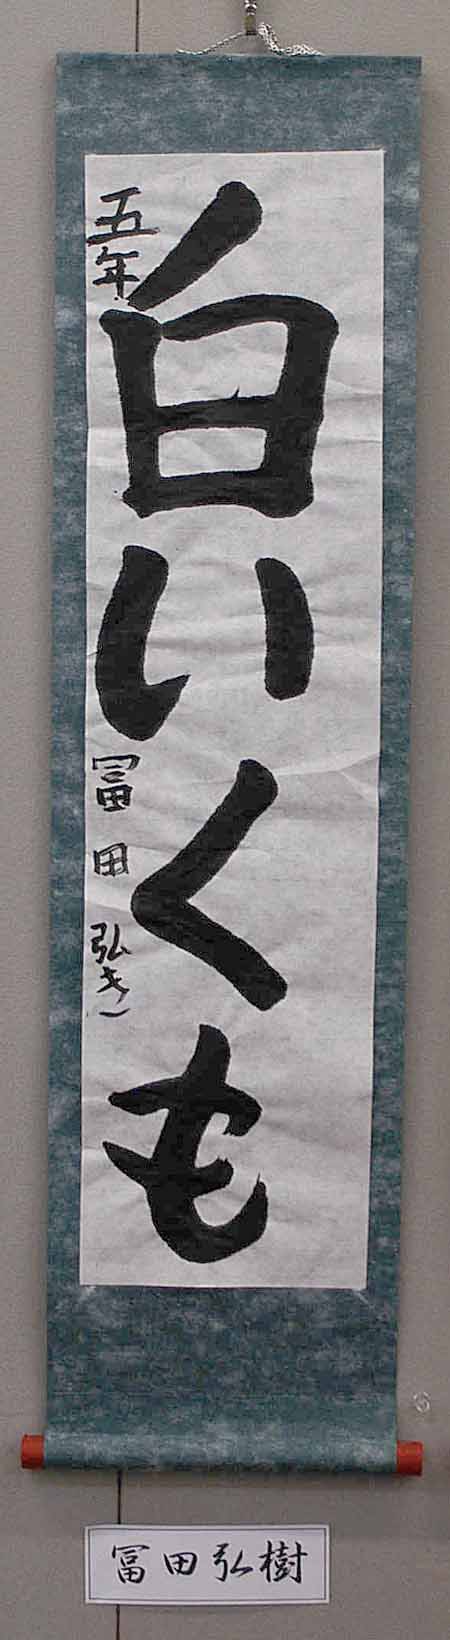 白いくも
五年 冨田弘き
冨田弘樹